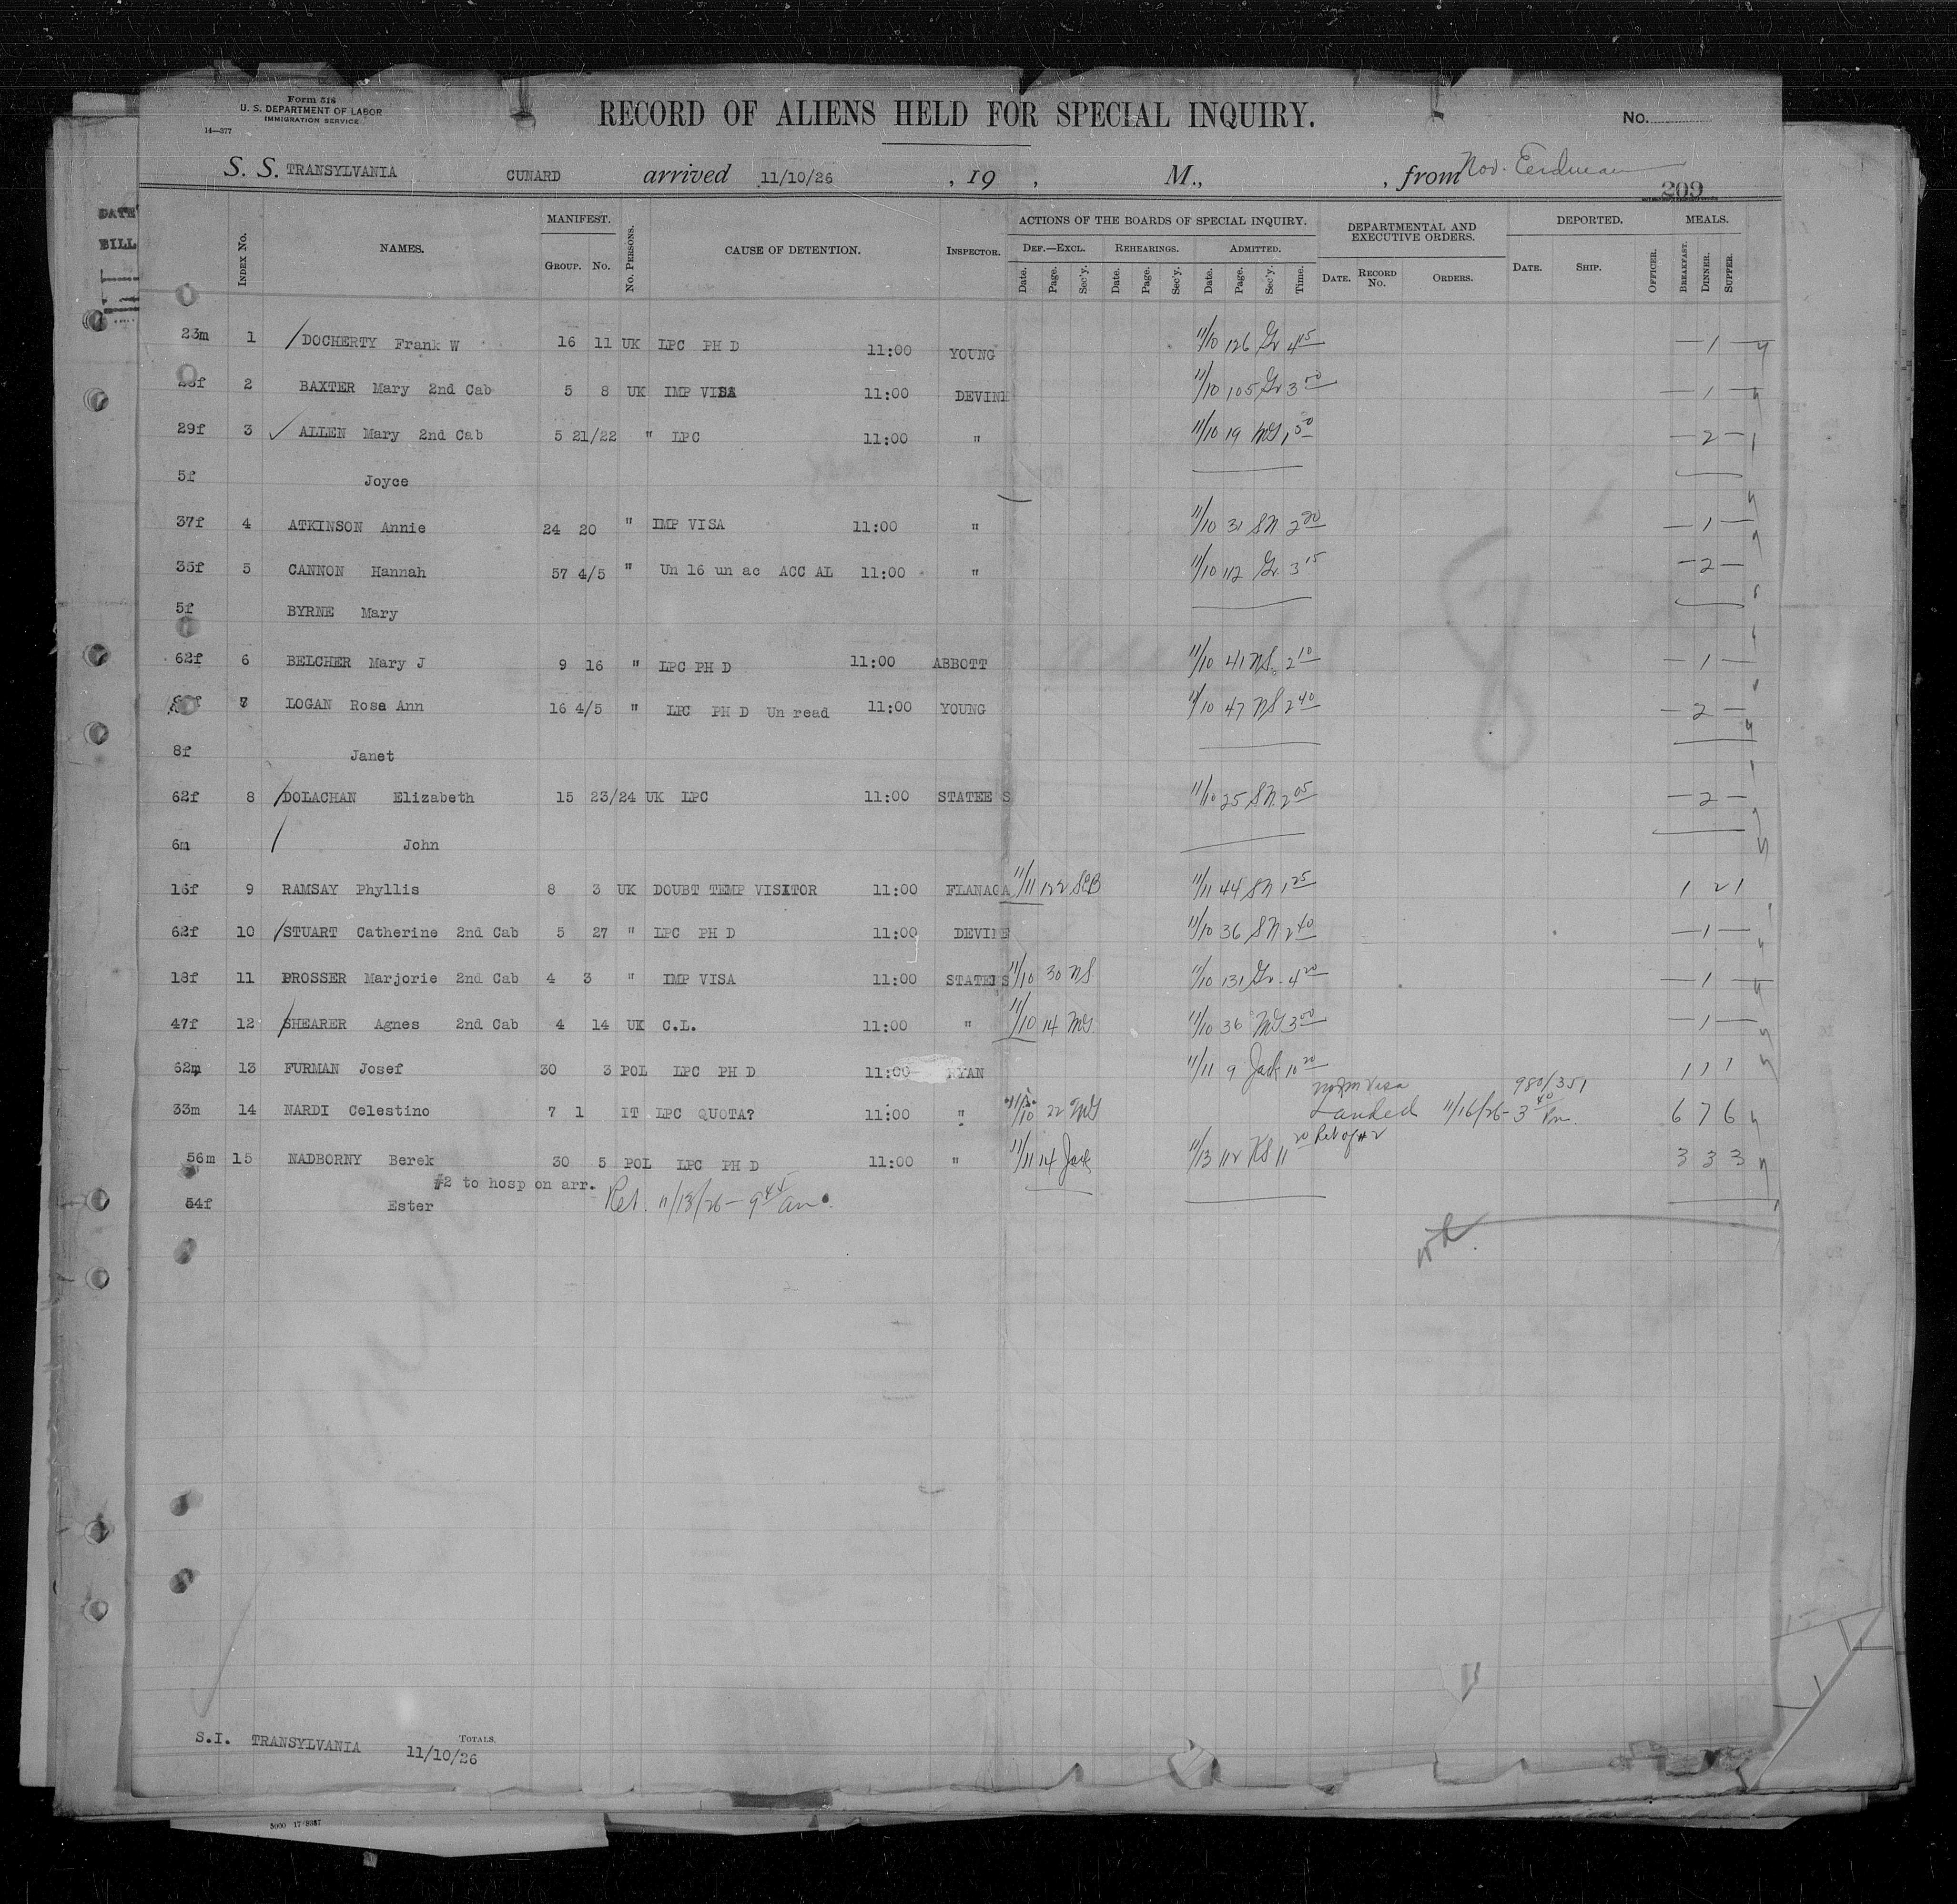 Form 518
U. S. DEPARTMENT OF LABOR
IMMIGRATION SERVICE
14—377
RECORD OF ALIENS HELD FOR SPECIAL INQUIRY.
No.
S. S. TRANSYLVANIA CUNARD arrived 11/10/26 , 19 , M., , from Nov.
209
DATE
BILL
INDEX No. NAMES. MANIFEST. GROUP. No. No. PERSONS. CAUSE OF DETENTION. INSPECTOR. ACTIONS OF THE BOARDS OF SPECIAL INQUIRY. DEPARTMENTAL AND EXECUTIVE ORDERS. DEPORTED. MEALS.
DEF.—EXCL. REHEARINGS. ADMITTED.
Date. Page. Sec'y. Date. Page. Sec'y. Date. Page. Sec'y. Time. DATE. RECORD No. ORDERS. DATE. SHIP. OFFICER. BREAKFAST. DINNER. SUPPER.
23m 1 DOCHERTY Frank W 16 11 UK LPC PH D 11:00 YOUNG 11/10 126 Gr 4 15 — 1 —
2 BAXTER Mary 2nd Cab 5 8 UK IMP VISA 11:00 DEVINE 11/10 105 Gr 3 00 — 1 —
29f 3 ALLEN Mary 2nd Cab 5 21/22 " LPC 11:00 " 11/10 19 MG 1 50 — 2 —
5f Joyce
37f 4 ATKINSON Annie 24 20 " IMP VISA 11:00 " 11/10 31 SN 2 20 — 1 —
35f 5 CANNON Hannah 57 4/5 " Un 16 un ac ACC AL 11:00 " 11/10 112 Gr 3 15 — 2 —
5f BYRNE Mary
62f 6 BELCHER Mary J 9 16 " LPC PH D 11:00 ABBOTT 11/10 41 NS 2 10 — 1 —
7 LOGAN Rosa Ann 16 4/5 " LPC PH D Un read 11:00 YOUNG 11/10 47 NS 2 40 — 2 —
8f Janet
62f 8 DOLACHAN Elizabeth 15 23/24 UK LPC 11:00 STATEE S 11/10 25 SN 2 05 — 2 —
6m John
16f 9 RAMSAY Phyllis 8 3 UK DOUBT TEMP VISITOR 11:00 FLANAGA 11/11 122 11/11 44 SN 1 25 1 2 1
62f 10 STUART Catherine 2nd Cab 5 27 " LPC PH D 11:00 DEVINE 11/10 36 SN 2 40 — 1 —
18f 11 PROSSER Marjorie 2nd Cab 4 3 " IMP VISA 11:00 11/10 30 NS 11/10 131 Gr 4 20 — 1 —
47f 12 SHEARER Agnes 2nd Cab 4 14 UK C.L. 11:00 " 11/10 14 MG 11/10 36 MG 3 00 — 1 —
62m 13 FURMAN Josef 30 3 POL LPC PH D 11:00 RYAN 11/11 9 Jack 10 20 1 1 1
33m 14 NARDI Celestino 7 1 IT LPC QUOTA? 11:00 " 11/10 22 MG Visa 980/351 Landed 11/16/26 - 3 40 Pm. 6 7 6
56m 15 NADBORNY Berek 30 5 POL LPC PH D 11:00 " 11/11 14 Jack 11/13 112 KS 11 20 Rel of #2 3 3 3
#2 to hosp on arr.
54f Ester Ret. 11/13/26 - 9 45 am.
S.I. TRANSYLVANIA 11/10/26 TOTALS.
5000 17-8357